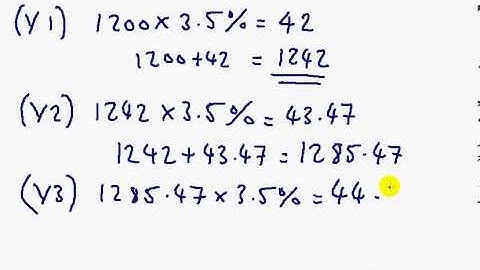 (Y1) 1200 × 3.5% = 42
1200 + 42 = 1242
(Y2) 1242 × 3.5% = 43.47
1242 + 43.47 = 1285.47
(Y3) 1285.47 × 3.5% = 44.